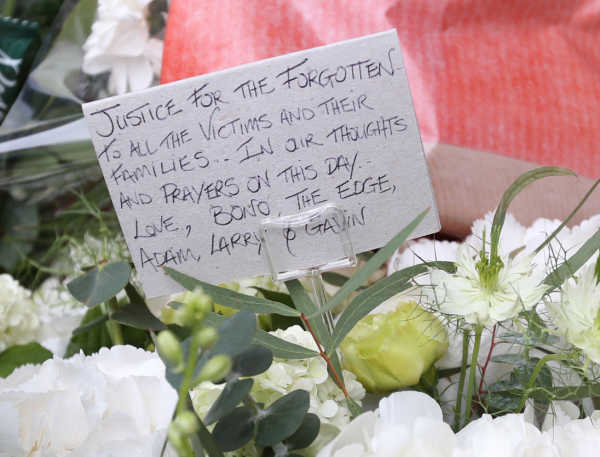 JUSTICE FOR THE FORGOTTEN
TO ALL THE VICTIMS AND THEIR
FAMILIES.. IN OUR THOUGHTS
AND PRAYERS ON THIS DAY..
LOVE, BONO THE EDGE,
ADAM, LARRY & GAVIN